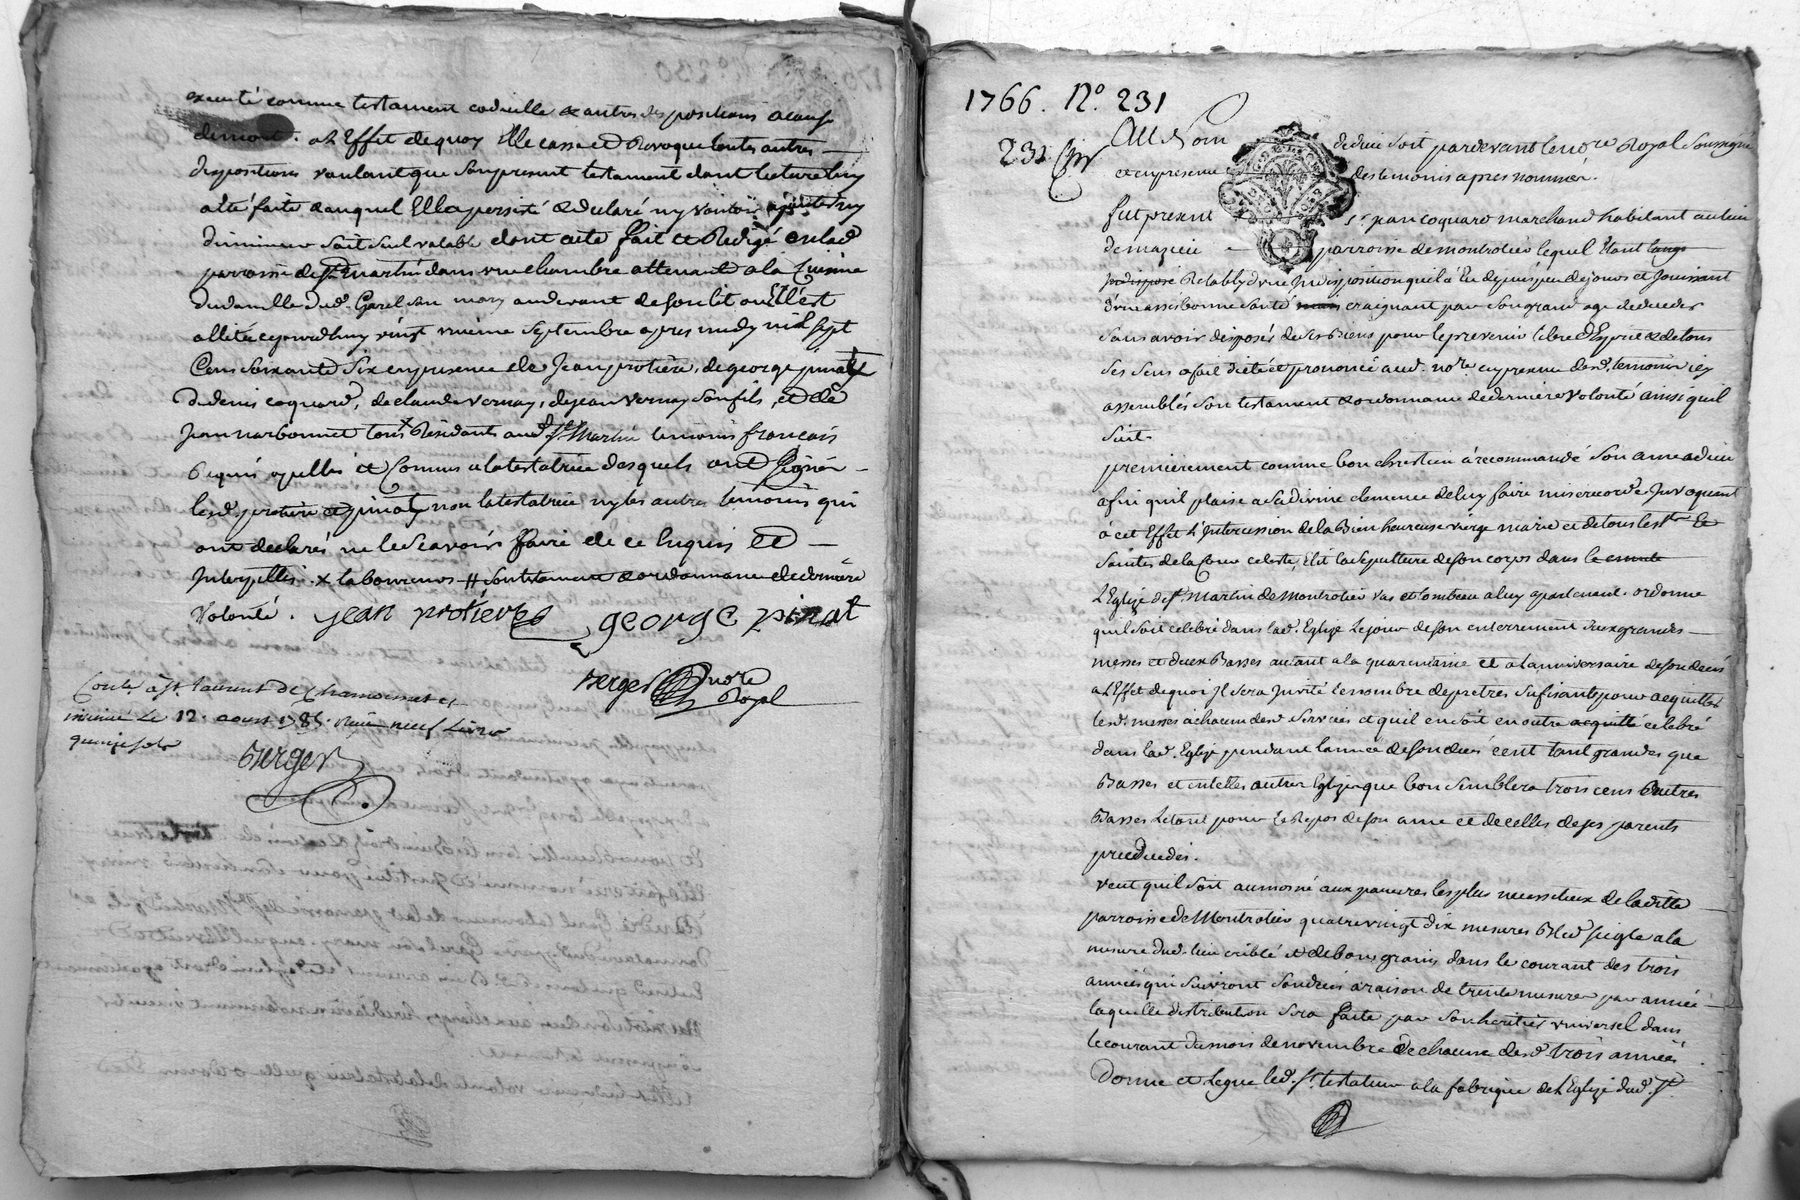 executé comme testament codicille & autres dispositions a cause
demort. a L Effet dequoy Elle casse et Revoque toutes autres
dispositions voulant que son present testament dont lecture luy
a été faite & auquel Elle a persisté & declaré ny vouloir ajouter ny
diminuer soit seul valable dont acte fait et Redigé en lad
parroisse de st martin dans une chambre attenant a la Cuisine
du dud. Garel son mary au devant de son lit ou Elle est
allitée cejourdhuy vingt uniême Septembre apres midy mil Sept
Cens Soixante Six en presence de Jean protière, de george pinat
de denis coquard, de claude vernay, de jean vernay son fils, et de
Jean narbonnet tous x Residants aud St. Martin temoins francois
Requis apellés et Connus a la testatrice desquels ont Signer
lesd. protiere et pinat non la testatrice ny les autres temoins qui
ont declarés ne le Scavoir faire de ce Enquis et
Interpellés. x laboureurs # Son testament & ordonnance de derniere
volonté. jean protiere george pinat
Berger nore
Royal
Conlé a St. laurent de Chamousset et
insinué Le 12. aoust 1785. Reçu neuf Livres
quinze sols
Berger
1766. N°. 231
231 Au Nom de dieu soit pardevant le nore Royal Soussigné
et en presence des temoins apres nommés.
fut present Sr. jean coquard marchand habitant au lieu
de mazieu parroisse de montrotier lequel Etant
Indisposé Retably d'une Indisposition qu'il a Eu depuis peu de jours et Jouissant
d'une assés bonne santé mais craignant par son grand age de deceder
sans avoir disposés de ses Biens pour le prevenir libre d'Esprit & de tous
ses sens a fait dicté et prononcé aud. nore. en presence desd. temoins icy
assemblés son testament & ordonnance de derniere volonté ainsi quil
suit.
premierement comme bon chrestien à recommandé son ame a dieu
afin quil plaise a sa divine clemence de luy faire misericorde Invoquant
à cet Effet L'Intercession de la Bien heureuse vierge marie et de tous les
saintes de la Cour celeste, Elit la sepulture de son corps dans le
L'Eglise de St. martin de Montrotier vas et tombeau a luy apartenant. ordonne
quil soit celebré dans lad. Eglize Le jour de son enterrement deux grandes
messes et deux Basses autant a la quarantaine et a l'anniversaire de son decés
a L'Effet dequoi Jl sera Invité le nombre de pretres sufisants pour acquitter
lesd. messes à chacun desd. Services et quil en soit en outre acquitté celebré
dans lad. Eglize pendant lannée de son decés cent tant grandes que
Basses et en telles autres Eglize que bon semblera trois cens autres
Basses Le tout pour le Repos de son ame et de celles de ses parents
predecedés.
veut quil soit aumosné aux pauvres les plus necessiteux de laditte
parroisse de Montrotier quatre vingt dix mesures Bled seigle a la
mesure dud. lieu criblé et de bons grains dans le courant des trois
années qui suivront son decés a raison de trente mesures par année
laquelle distribution sera faite par son heritier universel dans
le courant du mois de novembre de chacune desd. trois années
Donne et Legue led. sr. testateur a la fabrique de L'Eglize dud. St.